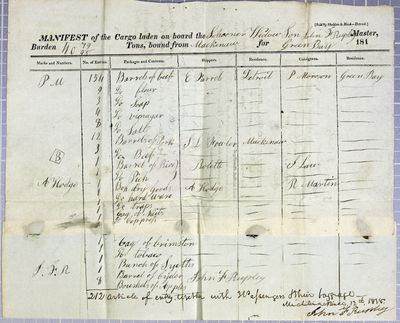 [Sold by Sheldon & Reed—Detroit.]
MANIFEST of the Cargo laden on board the Schooner Widow Son John F Rupley Master,
Burden 40 79/95 Tons, bound from Mackinaw for Green Bay 181
Marks and Numbers. No. of Entries. Packages and Contents. Shippers. Residence. Consignees. Residence.
P M 134 Barrels of beef E Parrob Detroit P Morrow Green Bay
Do flour
3 Do Soap
4 Do vinegar
8 Do Salt
12 Barrels of Pork J L Fowler Mackinaw
3 Do Beef
B 1 Barrel of Rice Rolette J Law
1 Do Pork
A Hodge 1 Box dry goods A Hodge R Martin
1 Do hard ware
1 Do traps
1 Keg of nails
1 Do copperas
1 Keg of brimston
1 Do tobaco
1 Bunch of
J. F. R 1 Barrel of Cyder John F Rupley
Bushels of Apples
212 article of entry together with 3 Passengers & their baggage
Michilimackinac, 13th 1818
John F Rupley